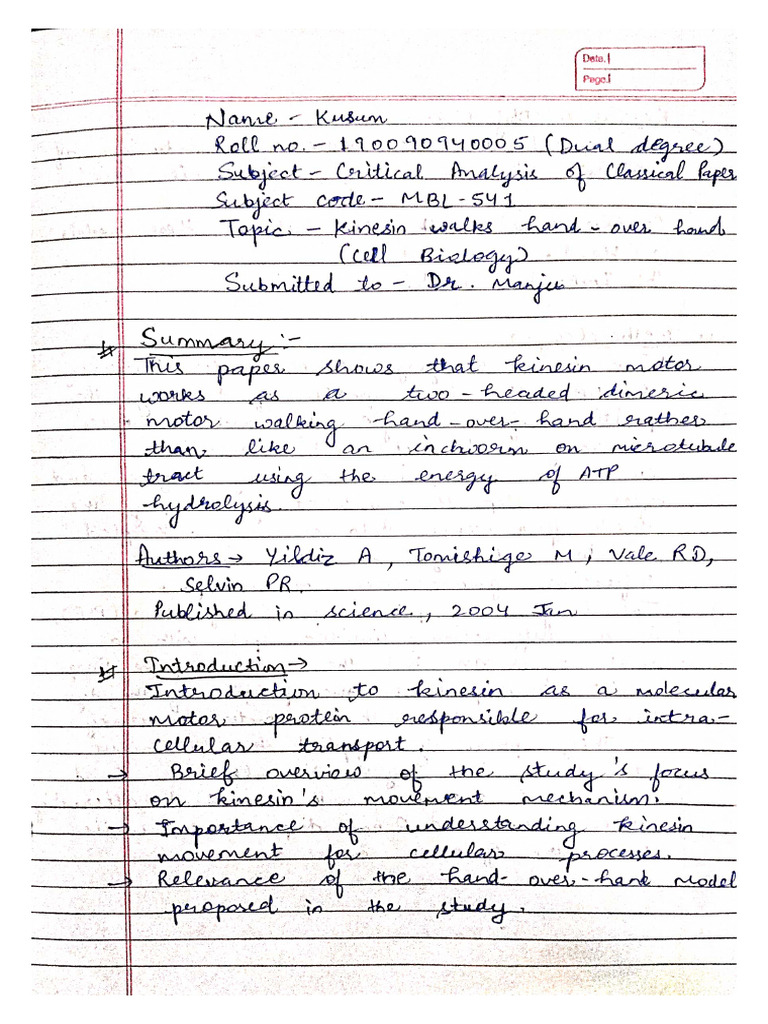 Date.
Page.
Name - Kusum
Roll no. - 190090940005 (Dual degree)
Subject - Critical Analysis of Classical Paper
Subject code - MBL-541
Topic - Kinesin walks hand-over hand
(Cell Biology)
Submitted to - Dr. Manju
* Summary :-
This paper shows that kinesin motor
works as a two-headed dimeric
motor walking hand-over-hand rather
than like an inchworm on microtubule
tract using the energy of ATP
hydrolysis.
Authors → Yildiz A, Tomishige M, Vale RD,
Selvin PR.
Published in science, 2004 Jan
* Introduction →
Introduction to kinesin as a molecular
motor protein responsible for intra-
cellular transport.
→ Brief overview of the study's focus
on kinesin's movement mechanism.
→ Importance of understanding kinesin
movement for cellular processes.
→ Relevance of the hand-over-hank model
proposed in the study.